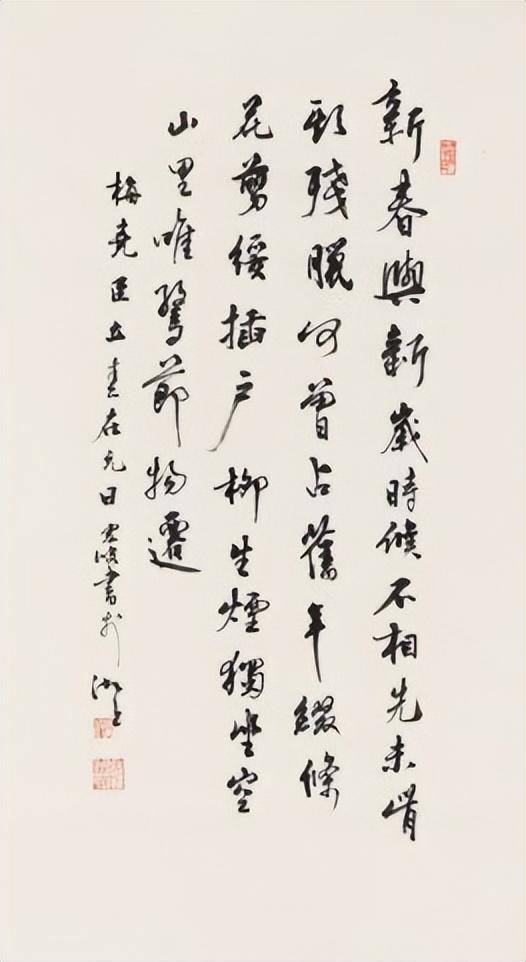 新春與新歲時候不相先未肯
欺殘臘何曾占舊年綴條
花剪綵插戶柳生煙獨坐空
山里唯驚節物遷
梅堯臣立春在元日書於